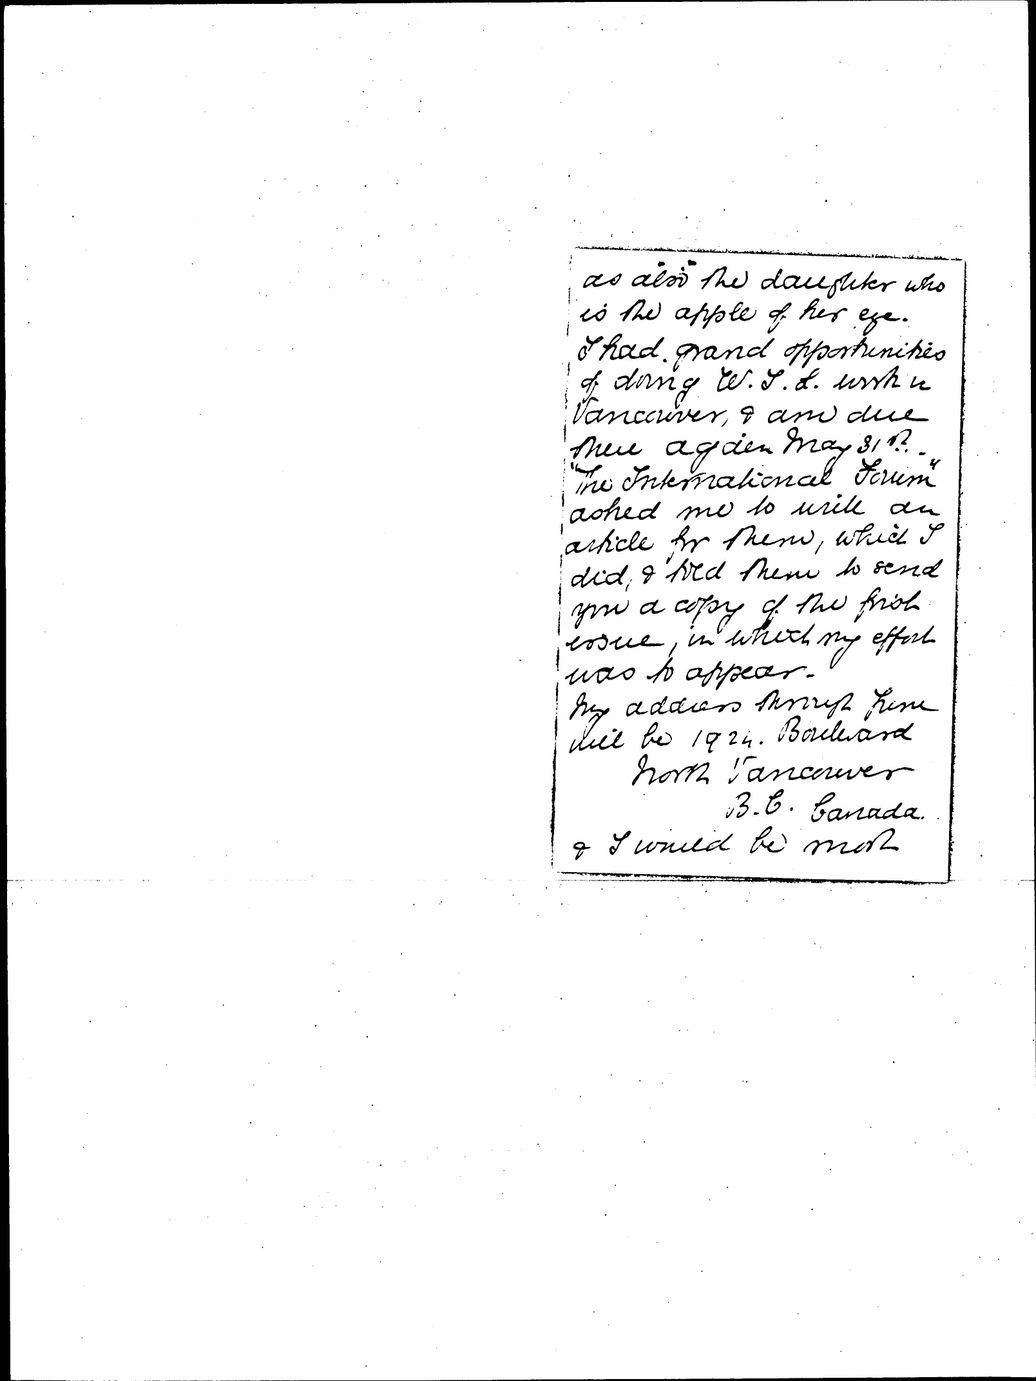 as also the daughter who
is the apple of her eye.
I had grand opportunities
of doing W.I.L. work in
Vancouver, & am due
there again May 31st.
"The International Forum"
asked me to write an
article for them, which I
did, & told them to send
you a copy of the first
issue, in which my effort
was to appear.
My address through June
will be 1924. Boulevard
North Vancouver
B.C. Canada.
& I would be most